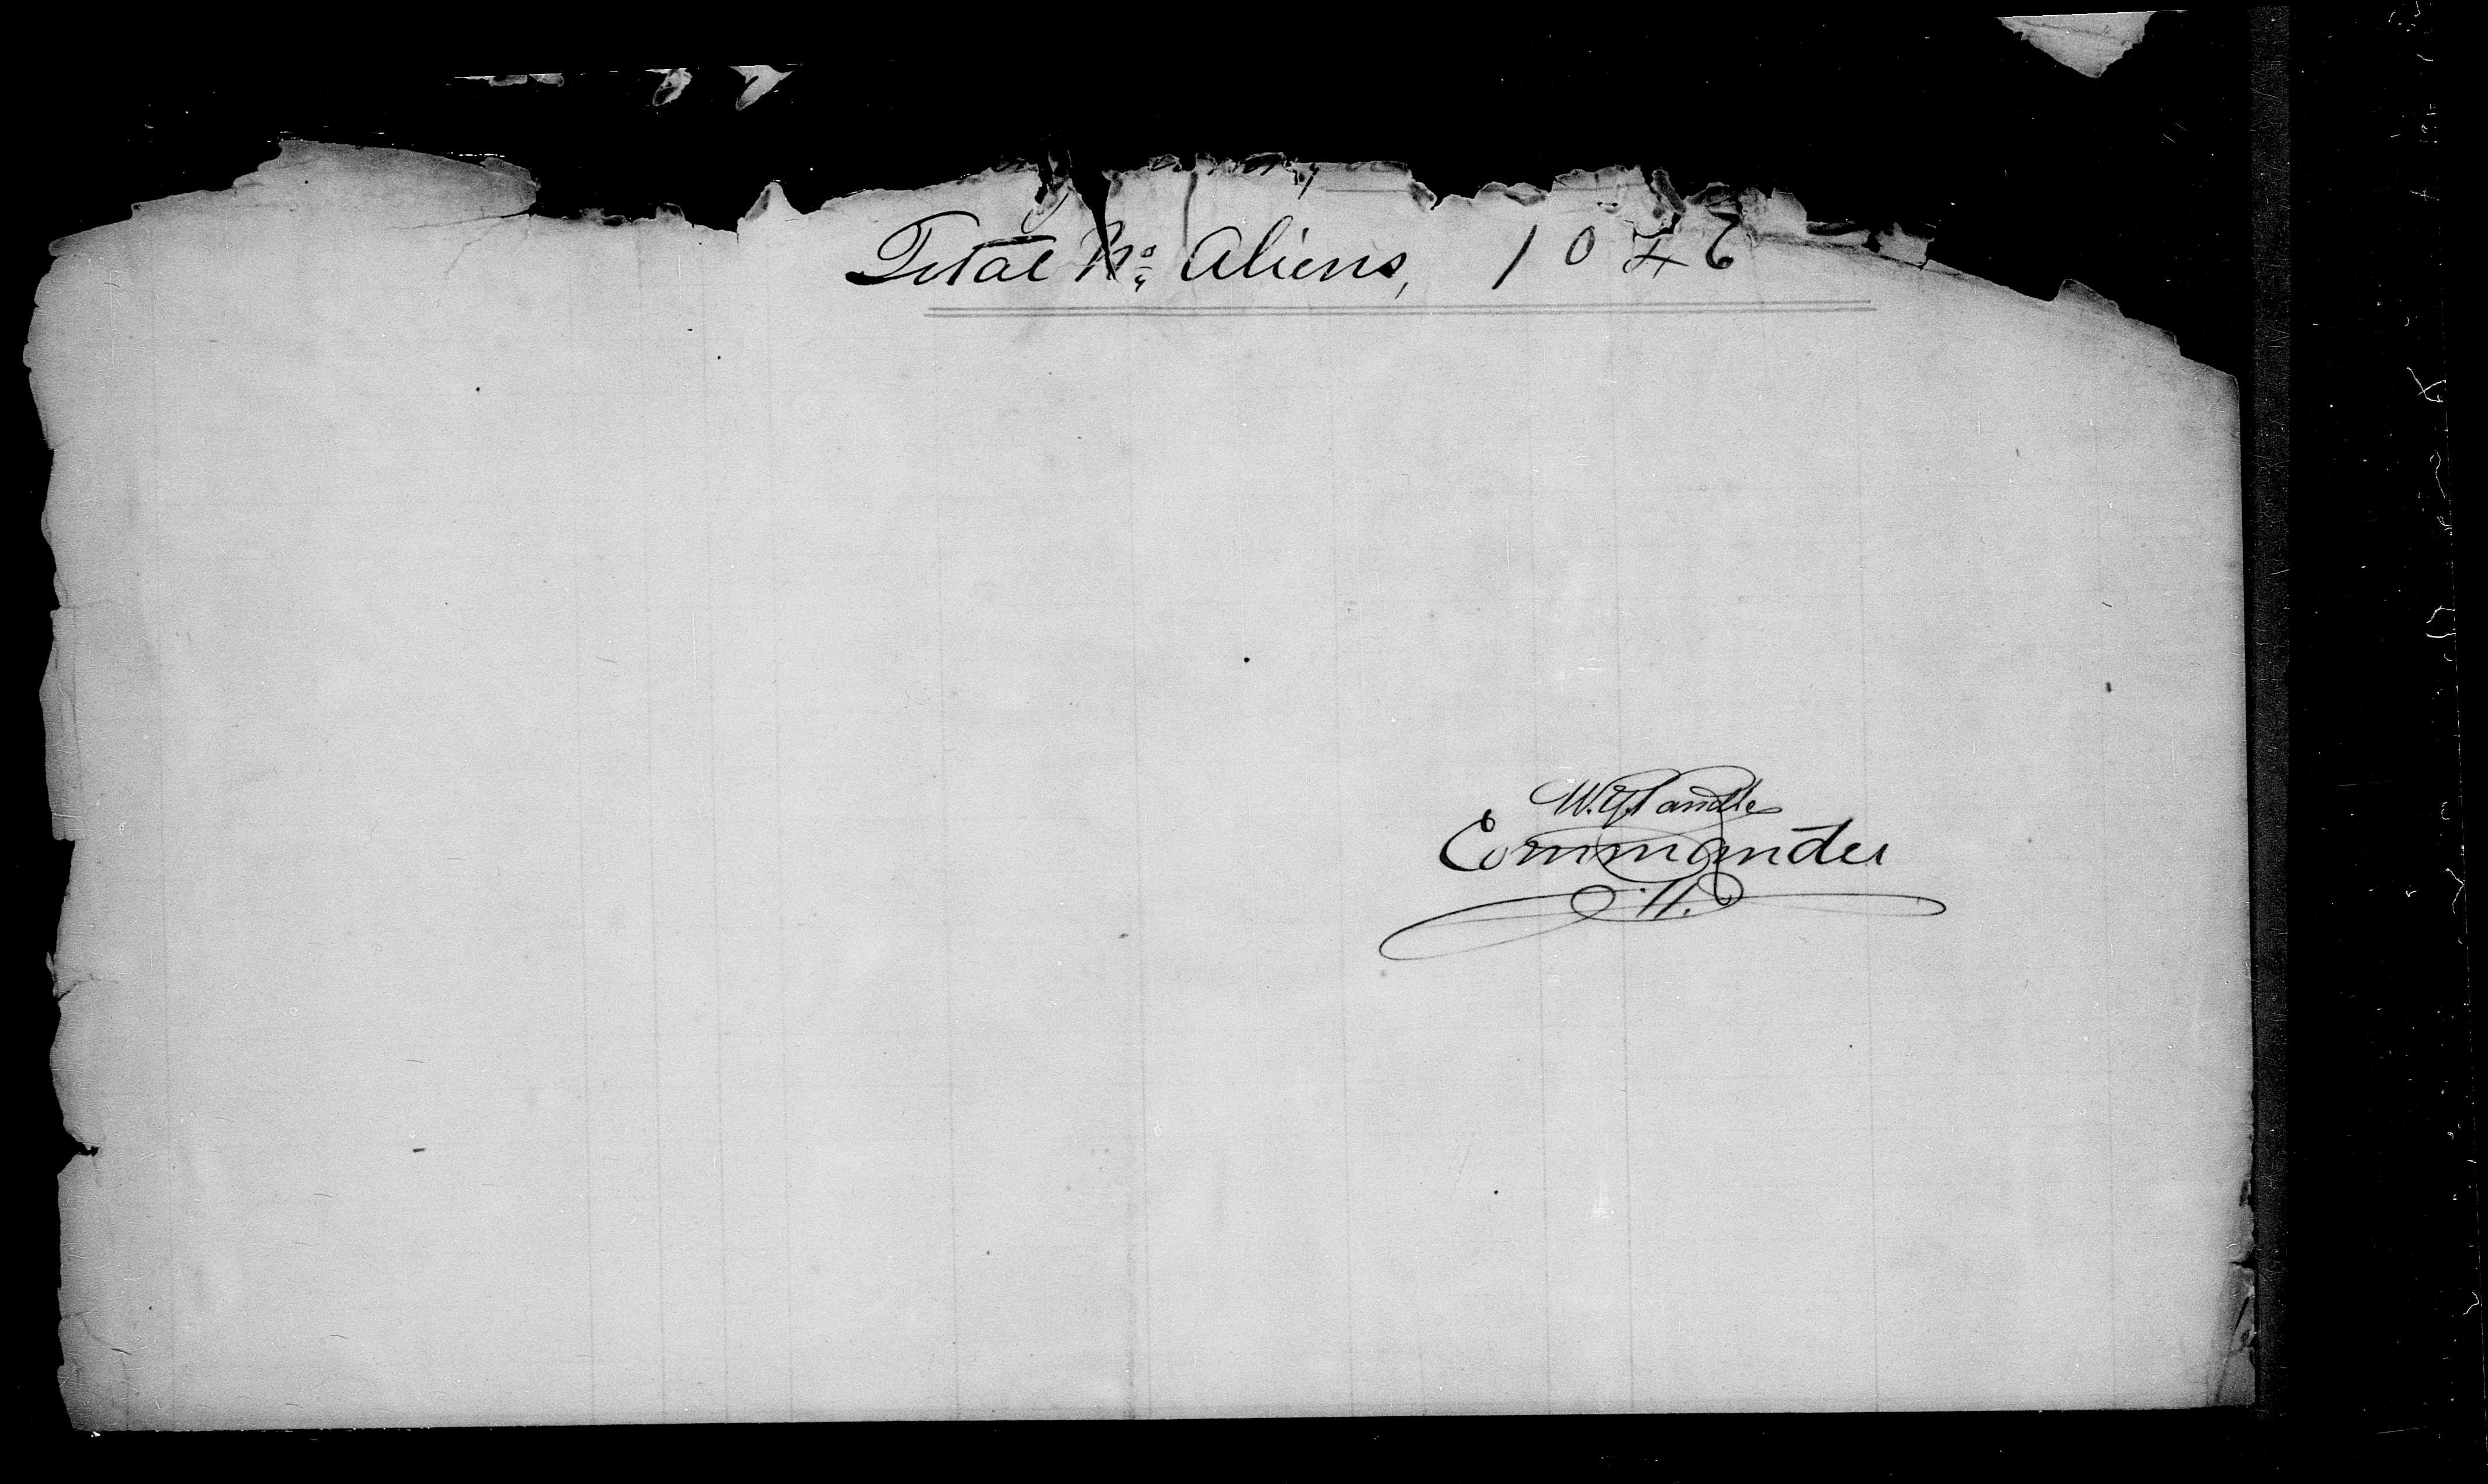 Total No. Aliens, 1046
W. G. Randle
Commander